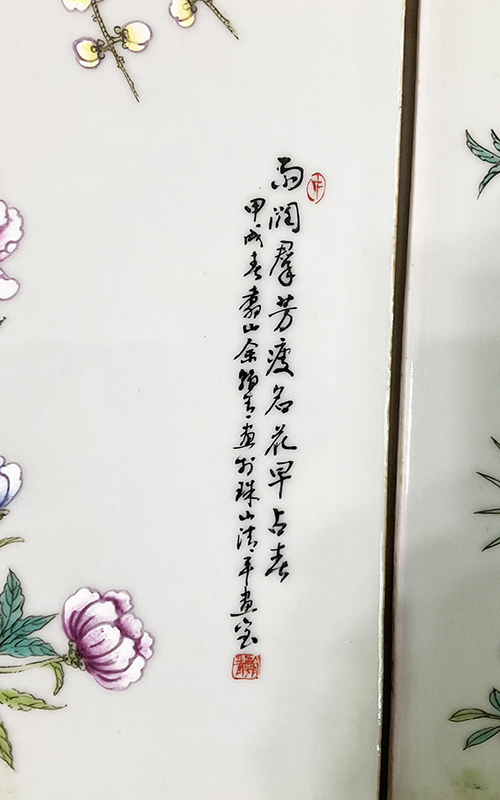 雨润羣芳瘦名花早占春
甲戌春翥山余翰青畫於珠山清平畫室